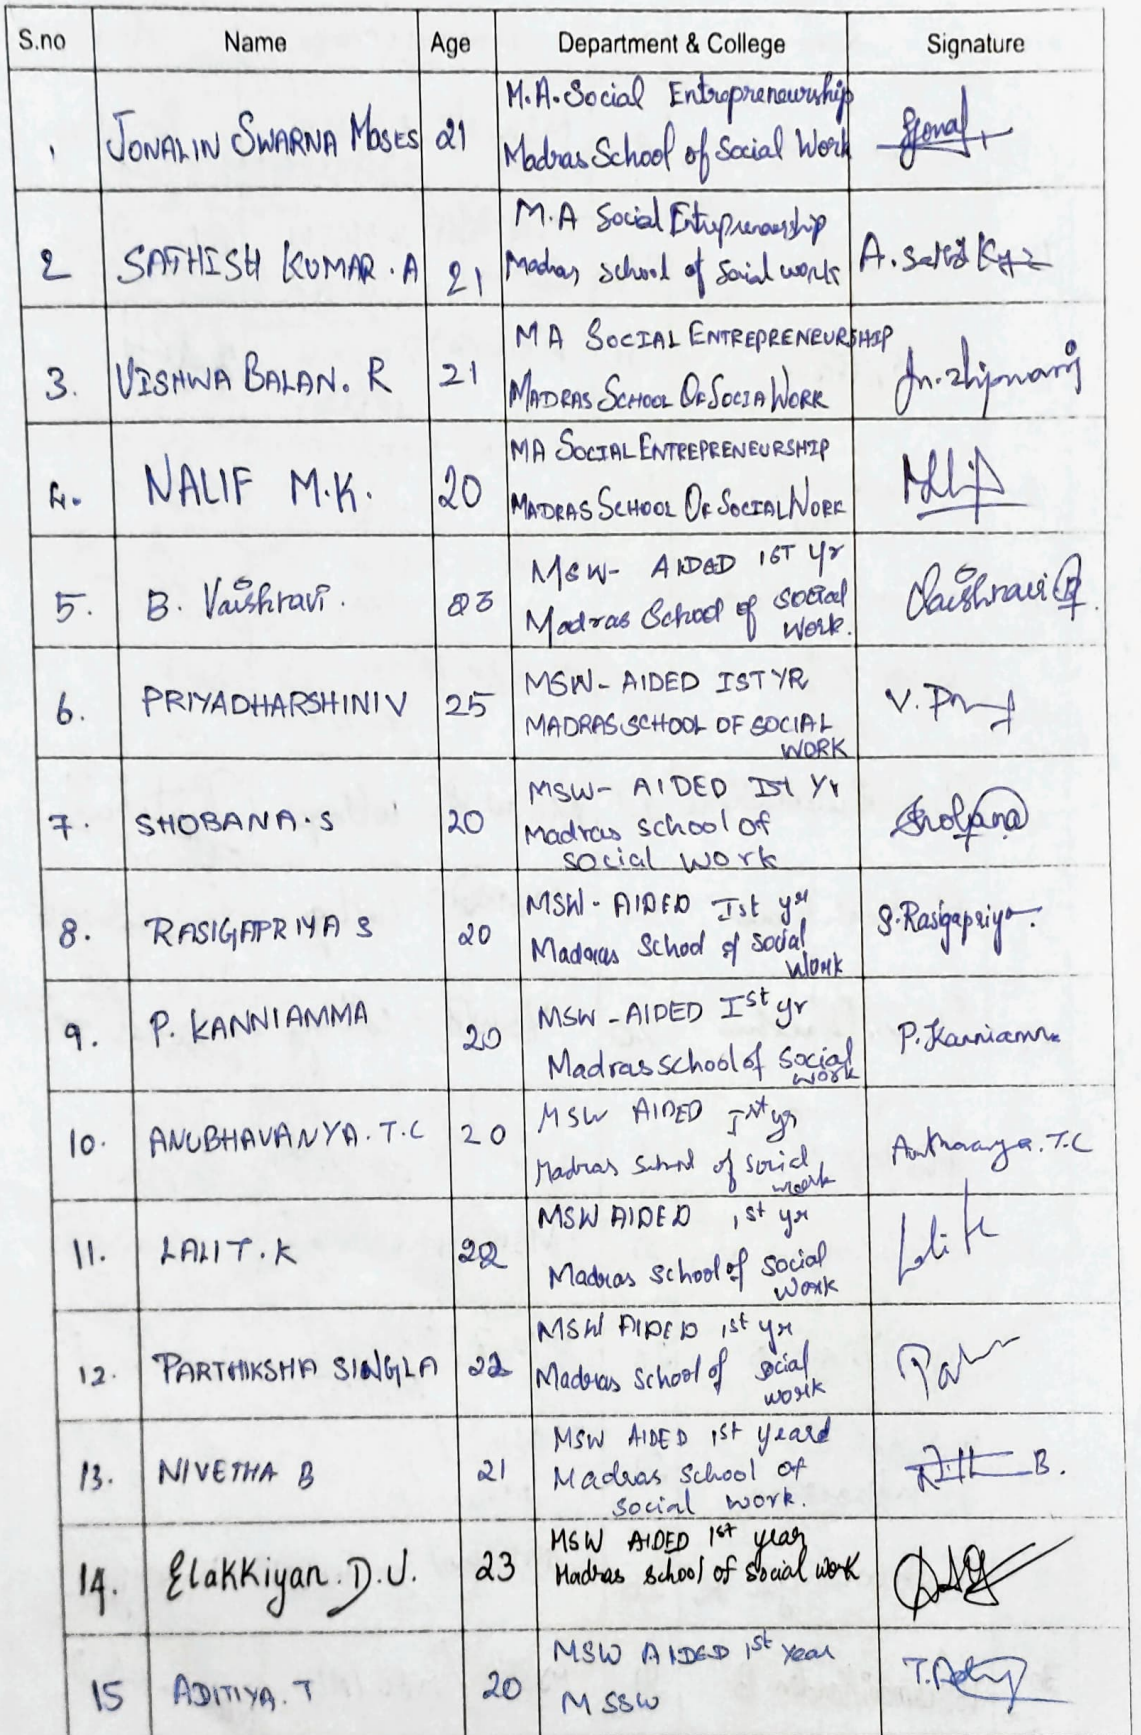 S.no Name Age Department & College Signature
1 JONALIN SWARNA MOSES 21 M.A. Social Entrepreneurship
Madras School of Social Work
2 SATHISH KUMAR . A 21 M.A Social Entupreneurship
Madras school of Social work
3. VISHWA BALAN. R 21 MA SOCIAL ENTREPRENEURSHIP
MADRAS SCHOOL OF SOCIA WORK
4. NALIF M.K. 20 MA SOCIAL ENTREPRENEURSHIP
MADRAS SCHOOL OF SOCIAL WORK
5. B. Vaishnavi. 23 MSW- AIDED 1ST yr
Madras School of Social
Work. Vaishnavi B
6. PRIYADHARSHINI V 25 MSW- AIDED IST YR
MADRAS SCHOOL OF SOCIAL
WORK
7. SHOBANA.S 20 MSW- AIDED Ist Yr
Madras school of
social work Shobana
8. RASIGAPRIYA S 20 MSW- AIDED Ist yr
Madras School of Social
Work S.Rasigapriya
9. P. KANNIAMMA 20 MSW -AIDED Ist yr
Madras school of Social
work P.Kanniamma
10. ANUBHAVANYA. T.C 20 MSW AIDED Ist yr
Madras School of Social
work
11. LALIT. K 22 MSW AIDED 1st yr
Madras School of Social
Work Lalit K
12. PARTHIKSHA SINGLA 22 MSW AIDED 1st yr
Madras School of Social
work
13. NIVETHA B 21 MSW AIDED 1st yeard
Madras School of
Social work.
14. Elakkiyan. D.J. 23 MSW AIDED 1st year
Madras School of Social work
15 ADITIYA. T 20 MSW AIDED 1st year
MSSW